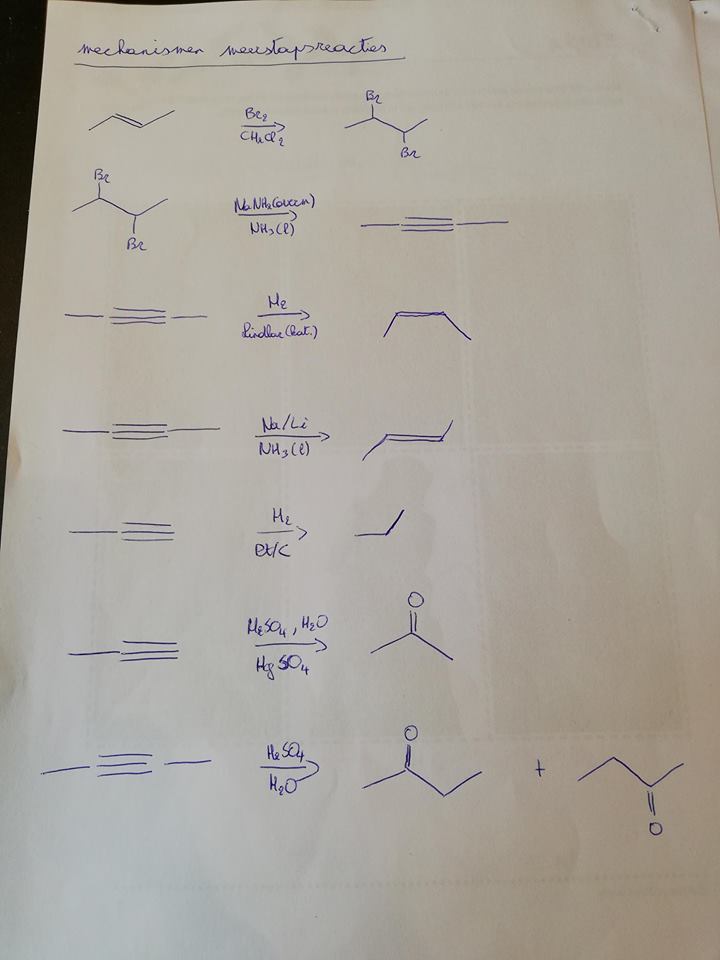 mechanismen meerstapsreacties
Br2
CH2Cl2
Br
Br
Br
Br
NaNH2 (overm)
NH3(l)
H2
Lindlar (kat.)
Na/Li
NH3(l)
H2
Pt/C
H2SO4, H2O
HgSO4
O
H2SO4
H2O
O
+
O